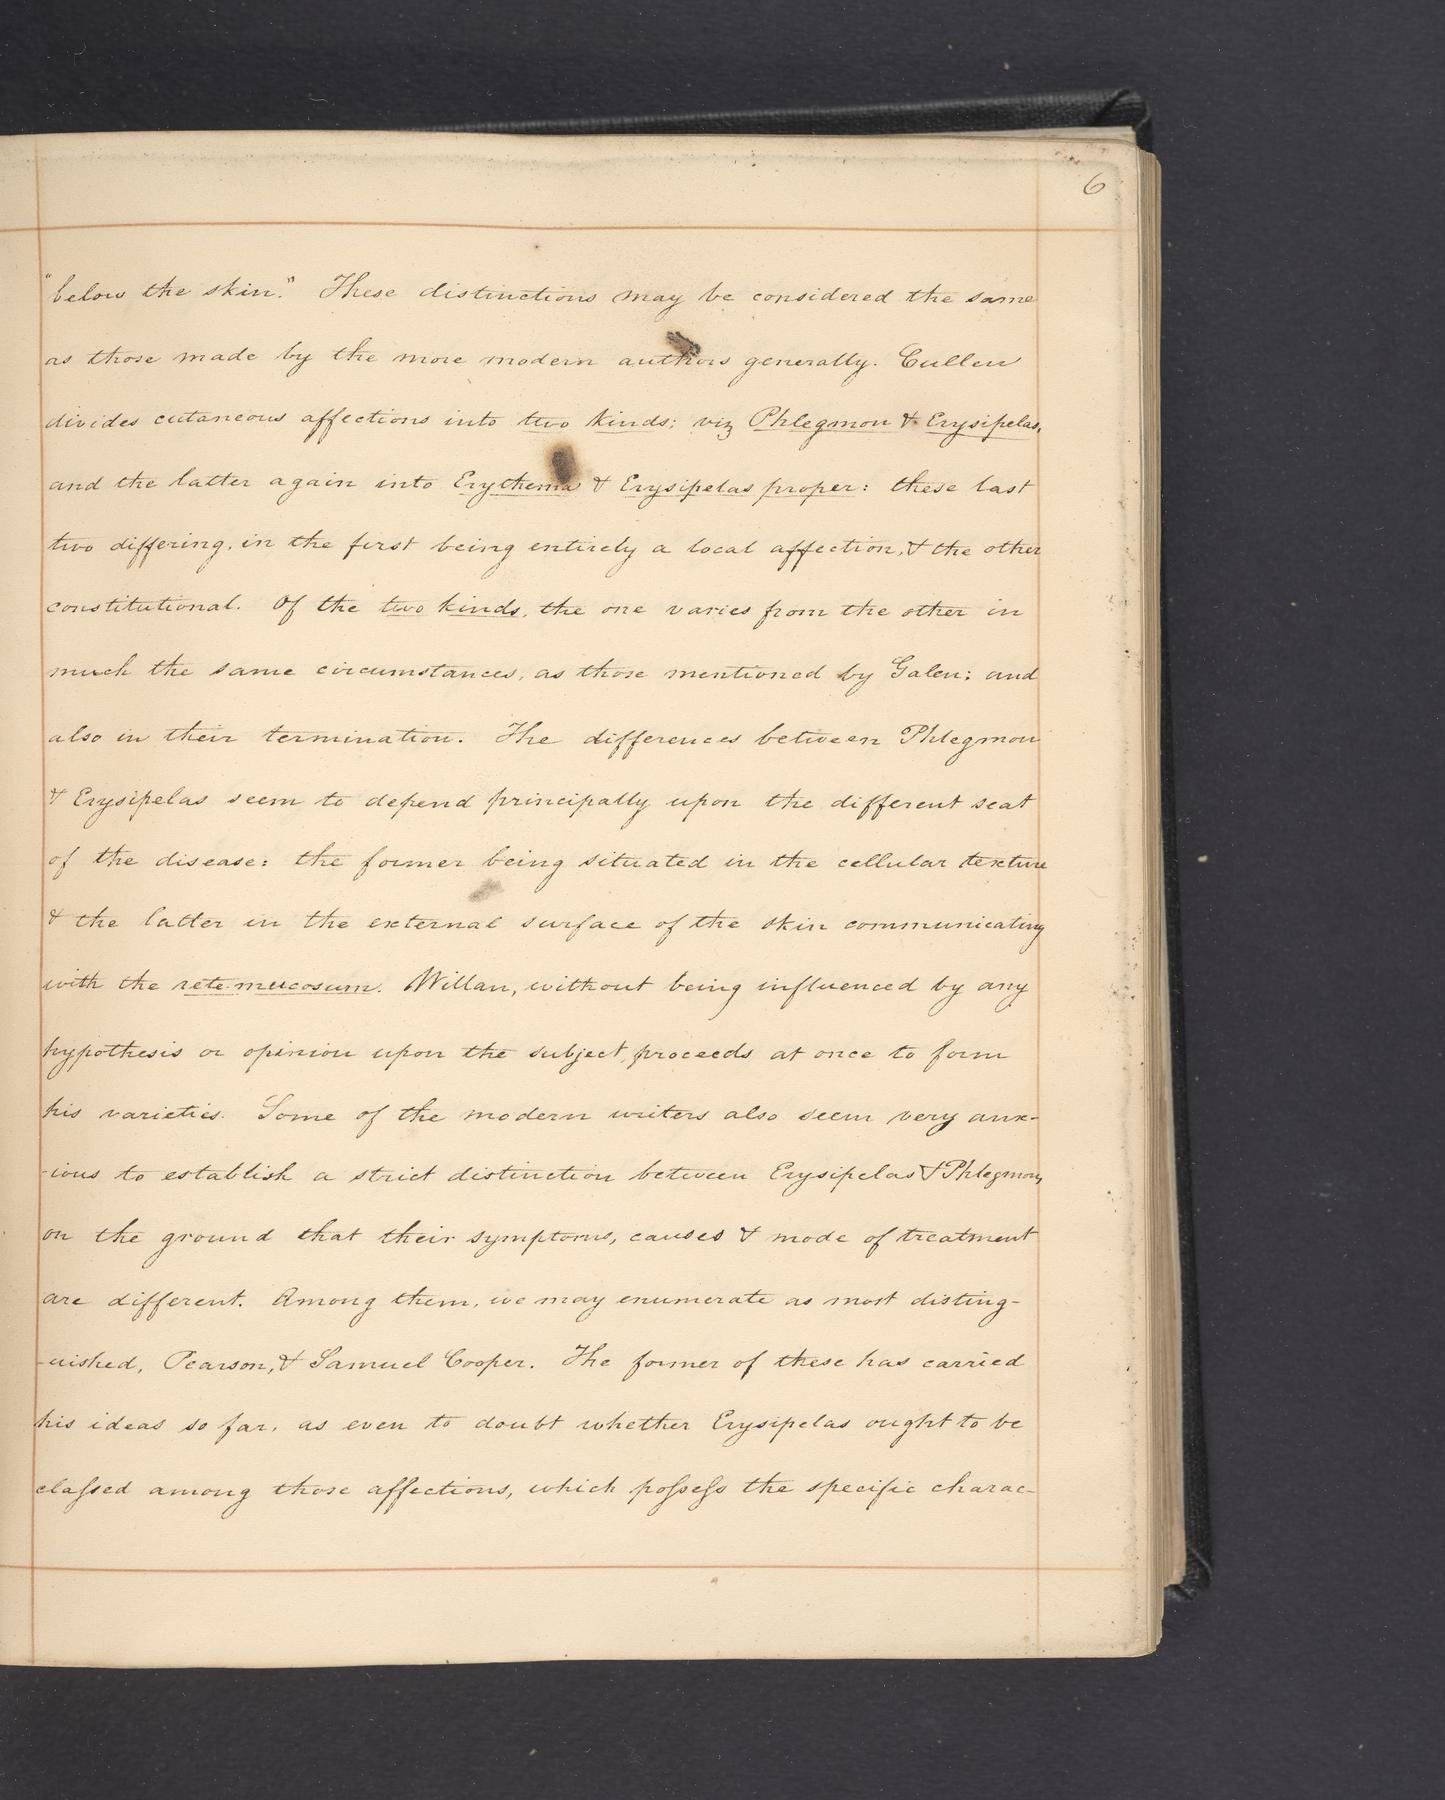 6
"below the skin." These distinctions may be considered the same
as those made by the more modern authors generally. Cullen
divides cutaneous affections into two kinds; viz Phlegmon & Erysipelas,
and the latter again into Erythema & Erysipelas proper: these last
two differing, in the first being entirely a local affection, & the other
constitutional. Of the two kinds, the one varies from the other in
much the same circumstances, as those mentioned by Galen; and
also in their termination. The differences between Phlegmon
& Erysipelas seem to depend principally upon the different seat
of the disease: the former being situated in the cellular texture
& the latter in the external surface of the skin communicating
with the rete mucosum. Willan, without being influenced by any
hypothesis or opinion upon the subject, proceeds at once to form
his varieties. Some of the modern writers also seem very anx-
-ious to establish a strict distinction between Erysipelas & Phlegmon,
on the ground that their symptoms, causes & mode of treatment
are different. Among them, we may enumerate as most disting-
-uished, Pearson, & Samuel Cooper. The former of these has carried
his ideas so far, as even to doubt whether Erysipelas ought to be
claſsed among those affections, which poſseſs the specific charac-